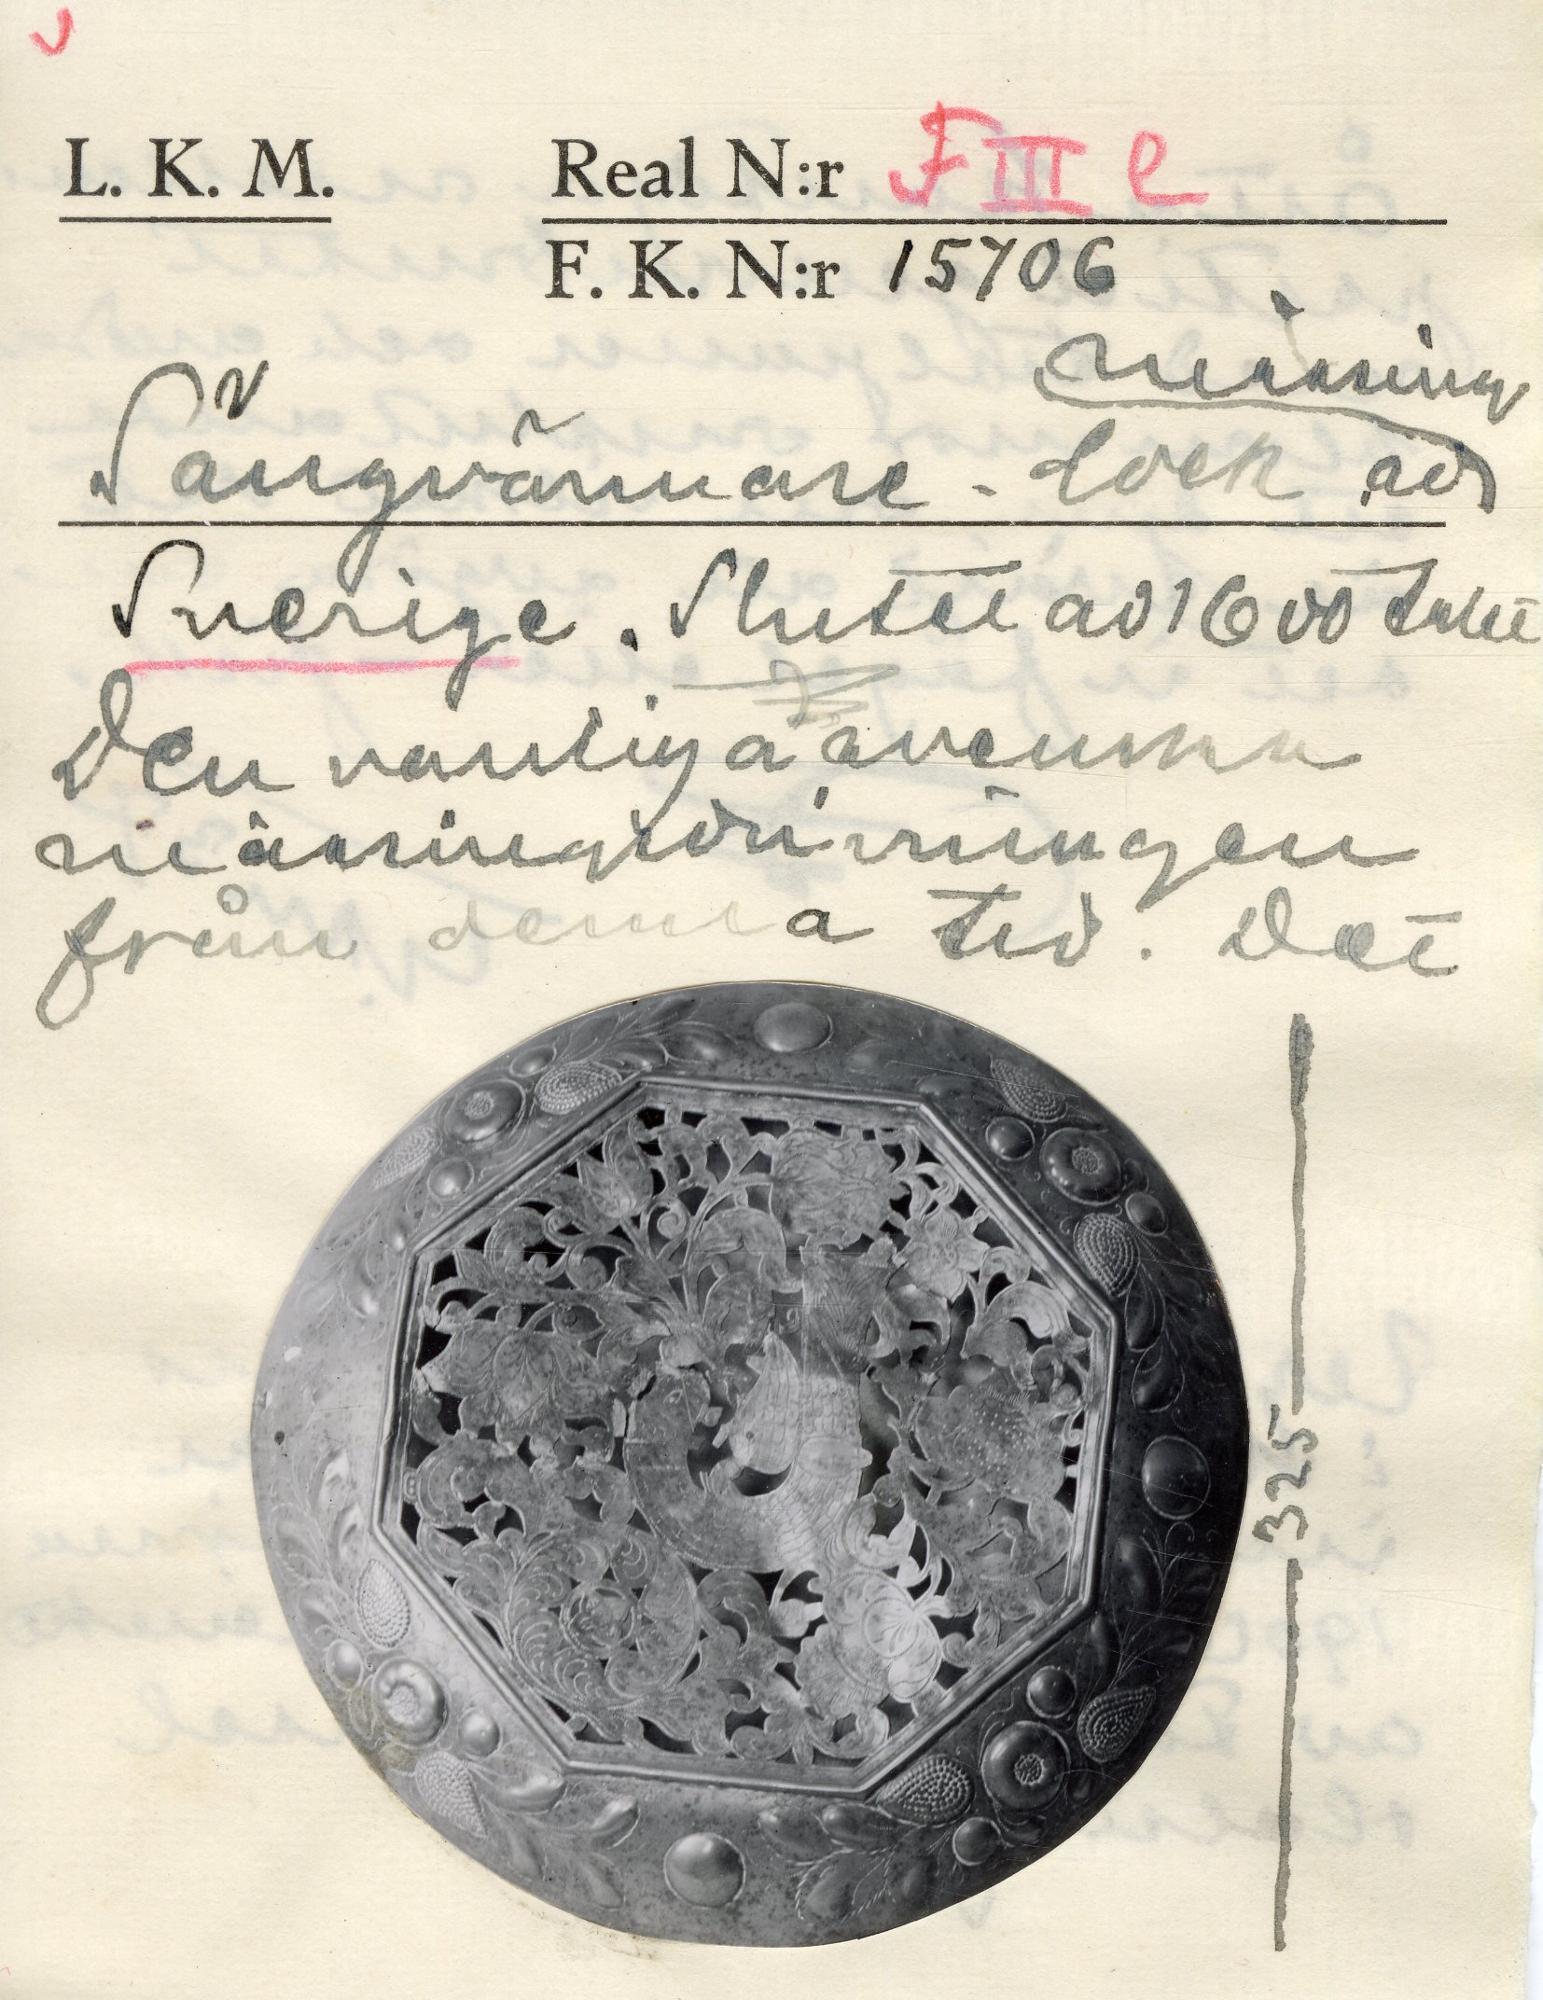 L. K. M. Real N:r F III e
F. K. N:r 15706
mässing
Sängvärmare - lock av
Sverige. Slutet av 1600 talet
Den vanliga svenska
mässingsdrivningen
från denna tid. Det
325